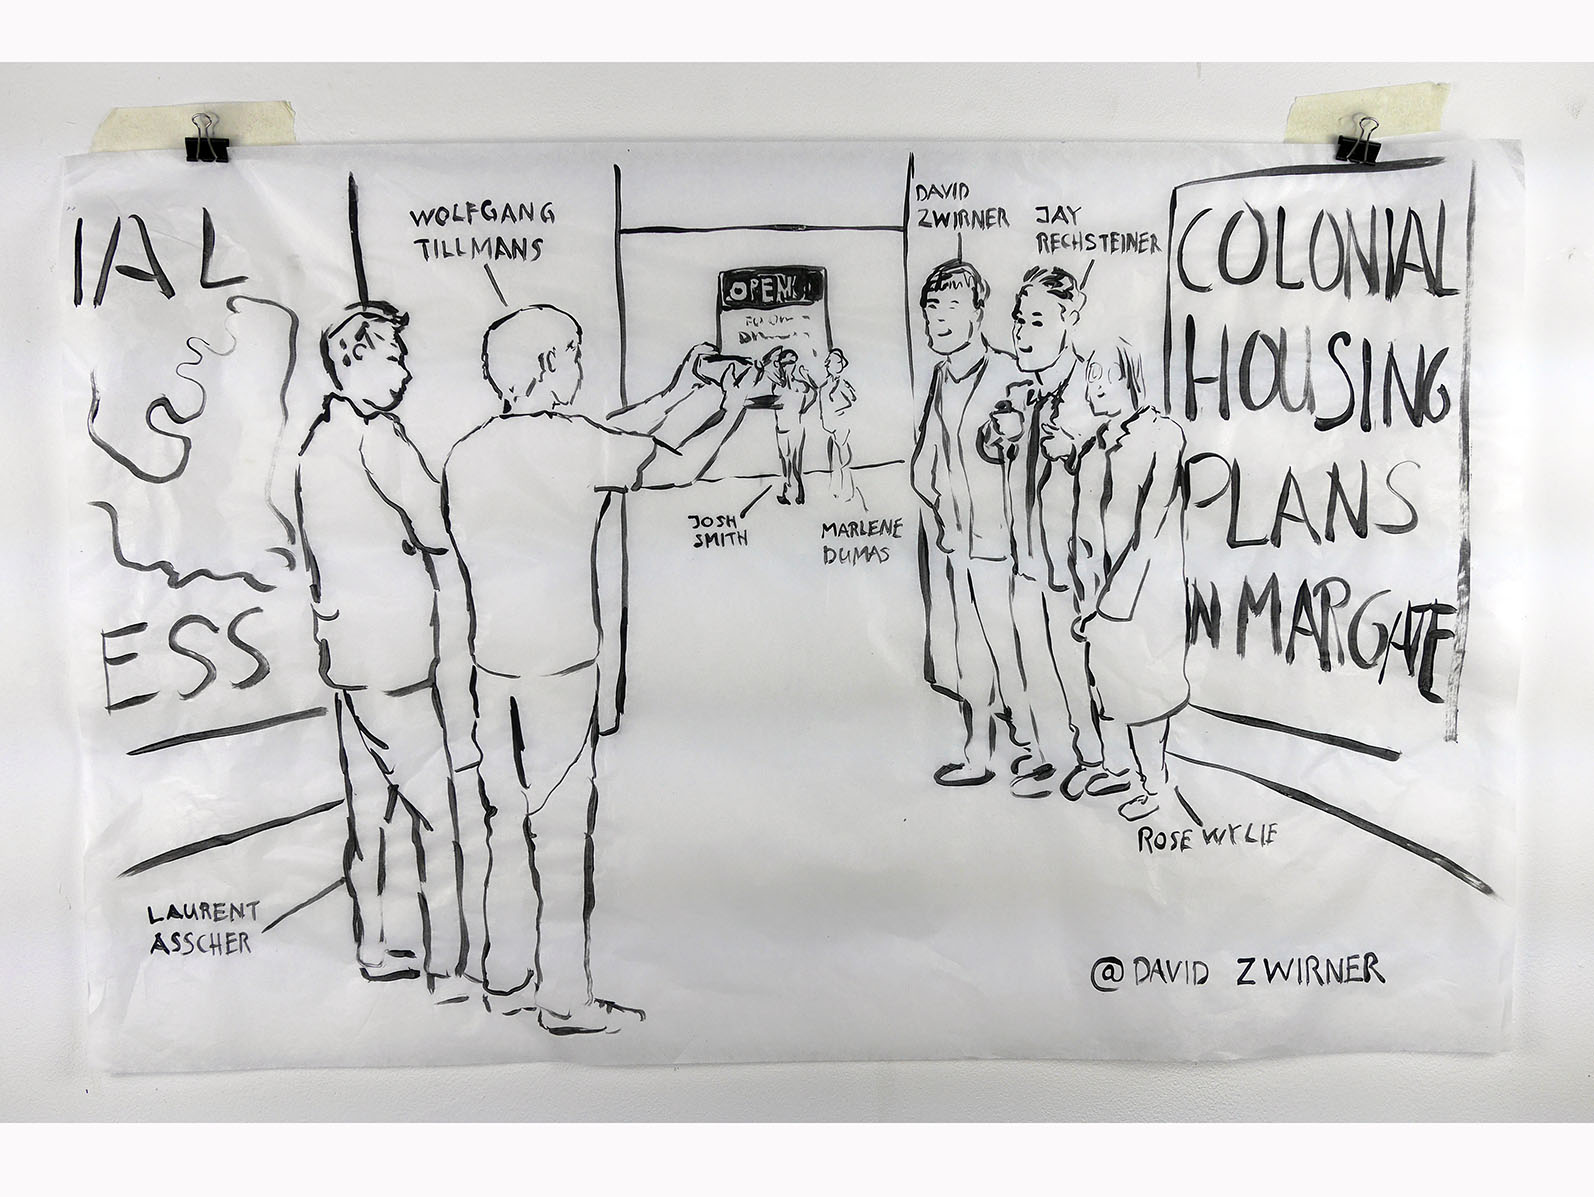 IAL
ESS
WOLFGANG
TILLMANS
LAURENT
ASSCHER
OPEN
JOSH
SMITH
MARLENE
DUMAS
DAVID
ZWIRNER
JAY
RECHSTEINER
ROSE WYLIE
COLONIAL
HOUSING
PLANS
IN MARGATE
@DAVID ZWIRNER